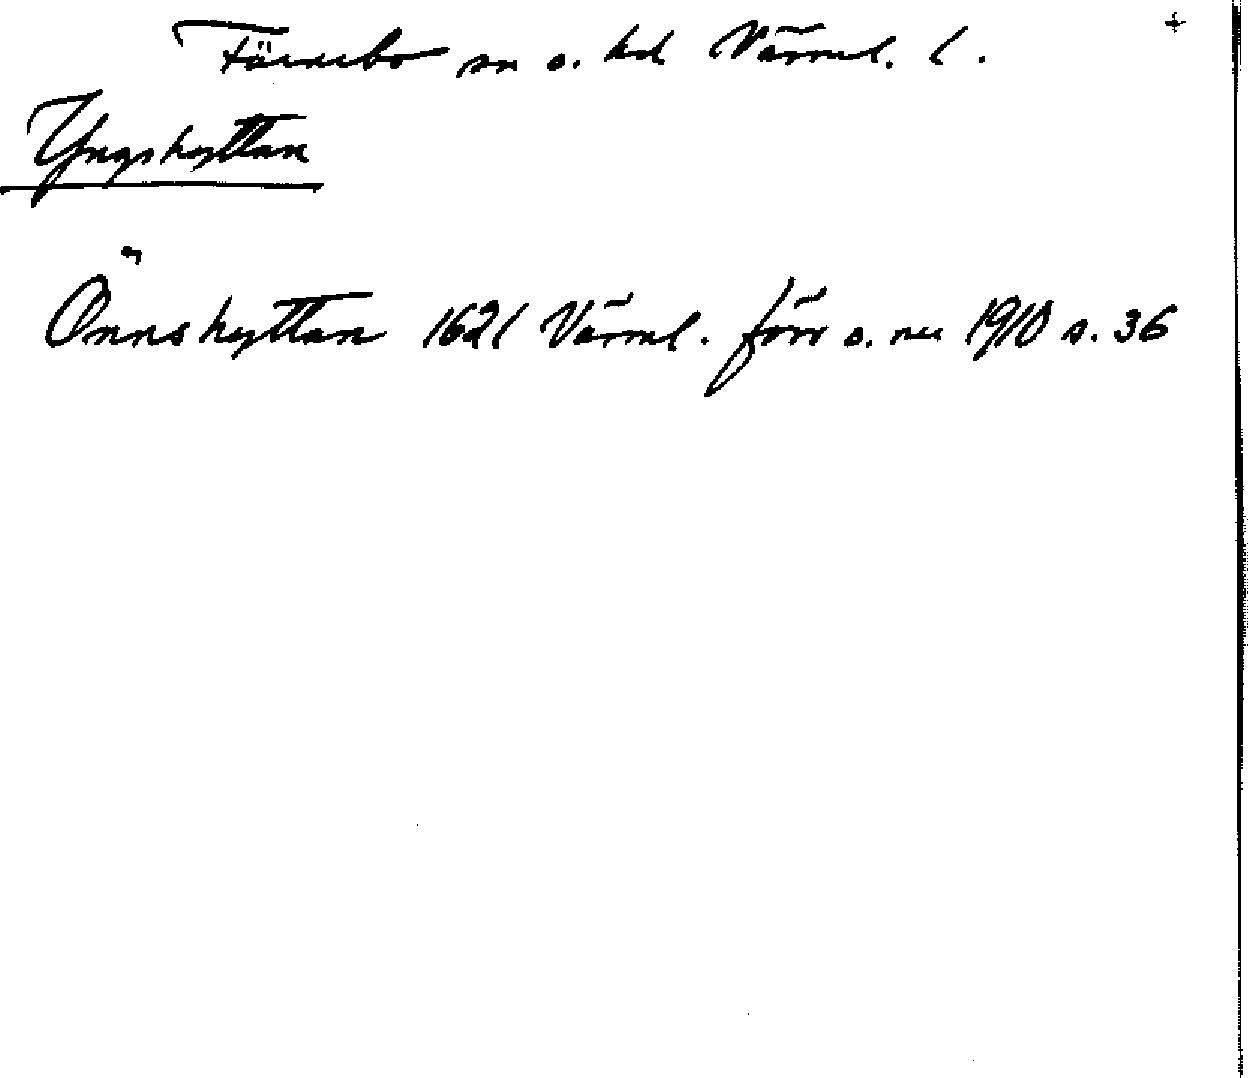 Färnebo sn o. hd Värml. l. +
Yngshyttan
Önnshyttan 1621 Värml. förr o. nu 1910 s. 36